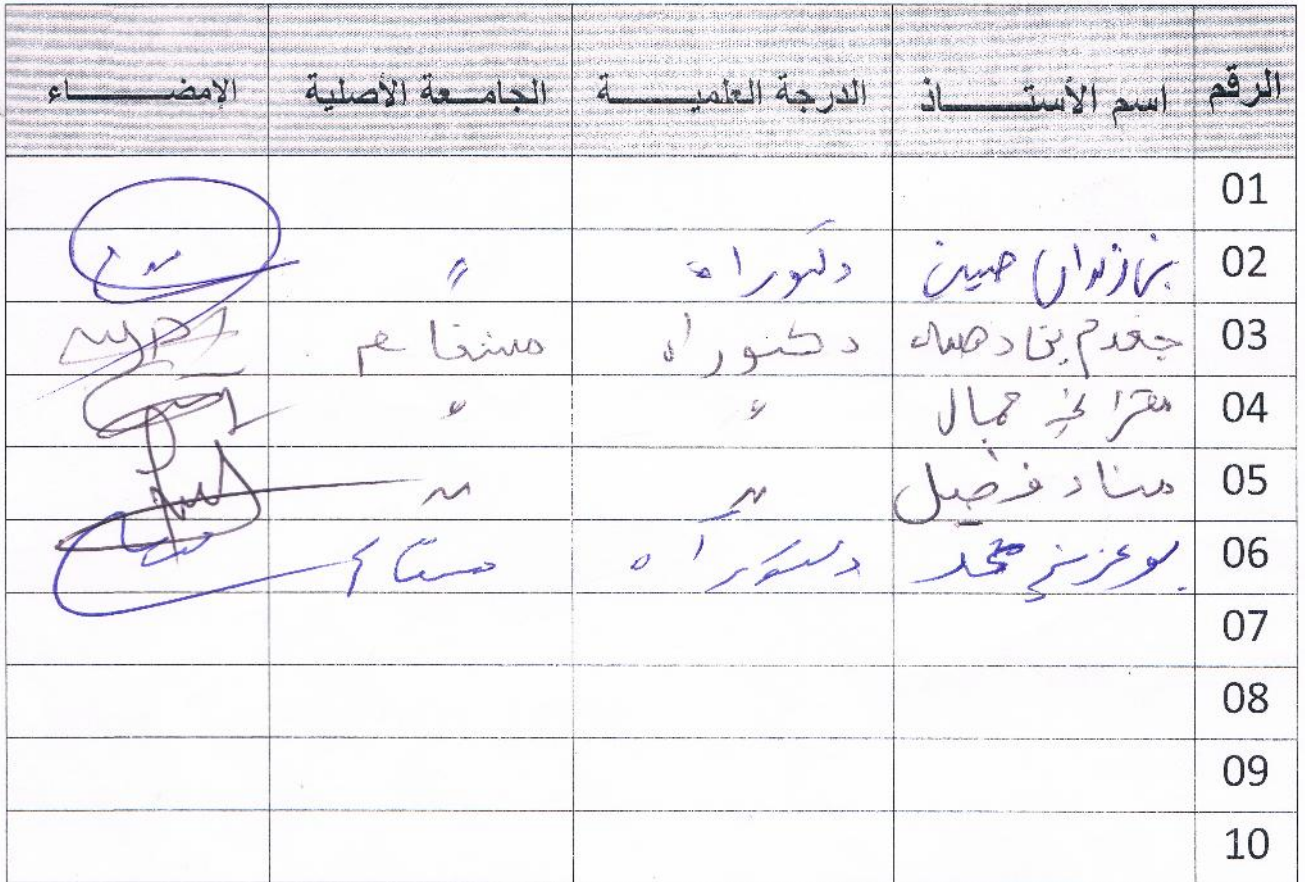 الرقم اسم الأستاذ الدرجة العلمية الجامعة الأصلية الإمضاء
01
02 حسين دكتوراه "
03 جغدم بن دهيبة دكتوراه مستغانم
04 مقراني جمال " "
05 مناد فضيل " "
06 بوعزيز محمد دكتوراه مستغانم
07
08
09
10